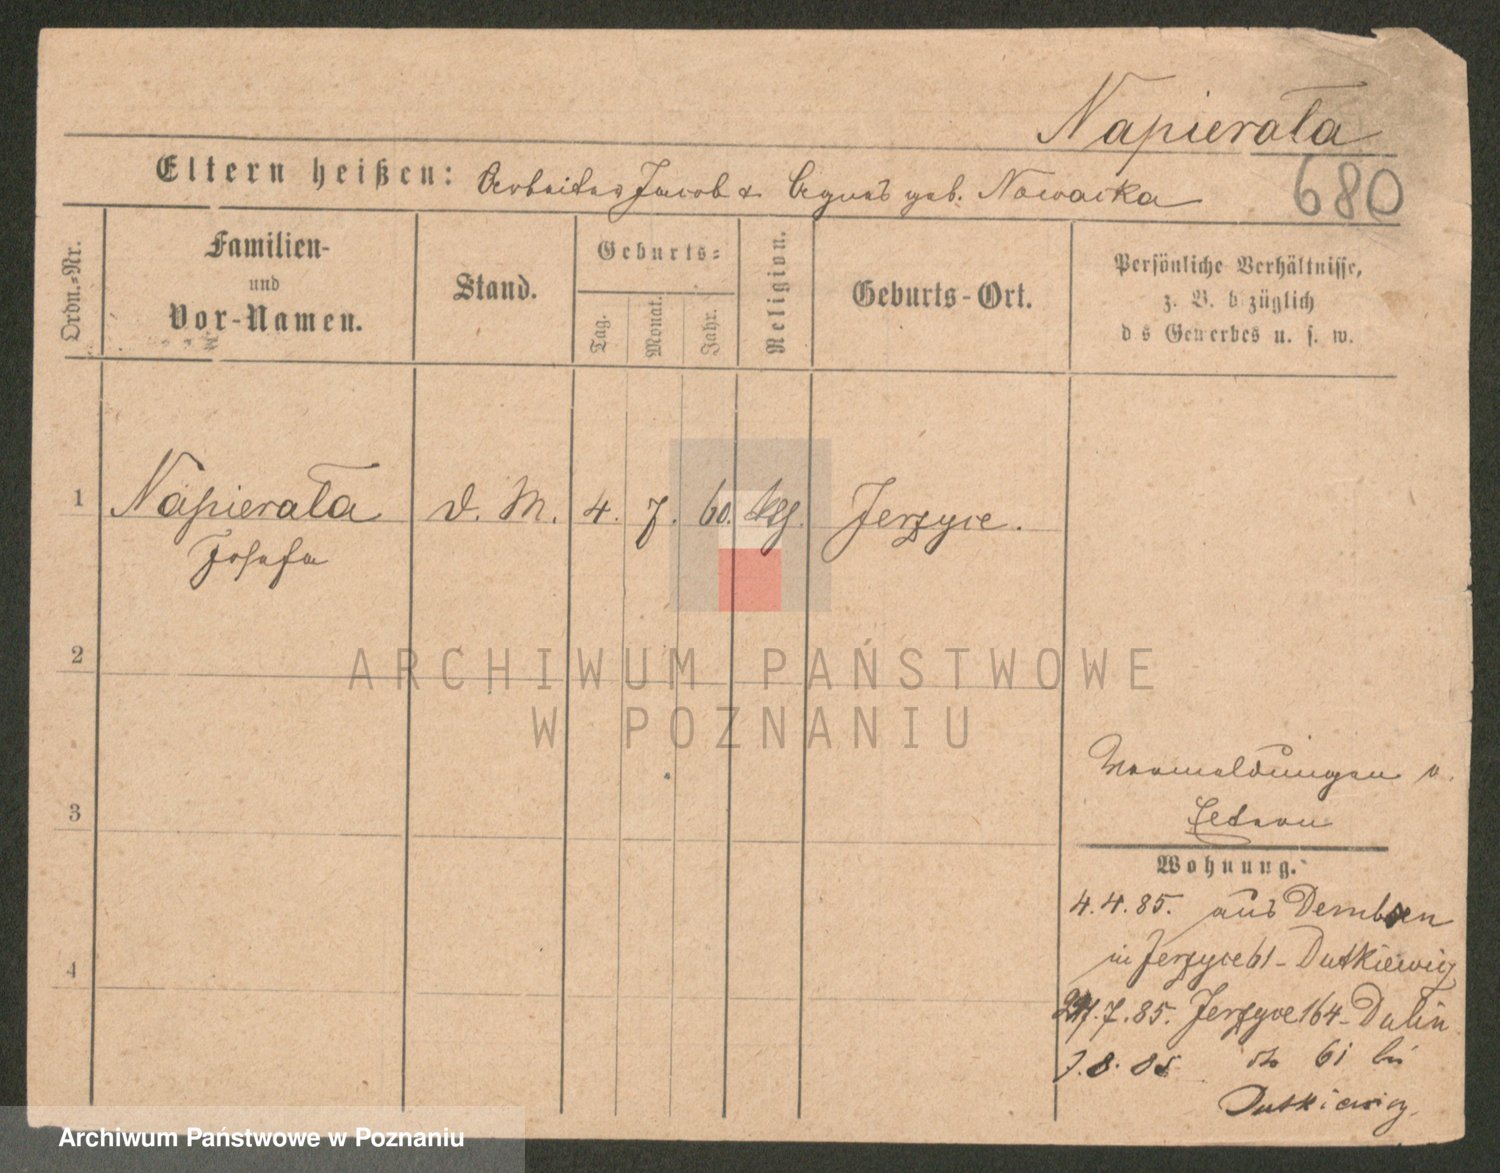 Napierała
680
Eltern heißen: Arbeiter Jacob & Agnes geb. Nowacka
Ordn.-Nr.
Familien-
und
Vor-Namen.
Stand.
Geburts-
Tag.
Monat.
Jahr.
Religion.
Geburts-Ort.
Persönliche Verhältnisse,
z. B. bezüglich
d s Gewerbes u. s. w.
1 Napierała d. M. 4. 7. 60. Jerzyce.
Josefa
2
ARCHIWUM PAŃSTWOWE
W POZNANIU
3
4
Wohnung.
4.4.85. aus Dembsen
in Jerzyce 61 - Dutkiewicz
7.85. Jerzyce 164 - Dalin
8.85 61 bei
Dutkiewicz.
Archiwum Państwowe w Poznaniu